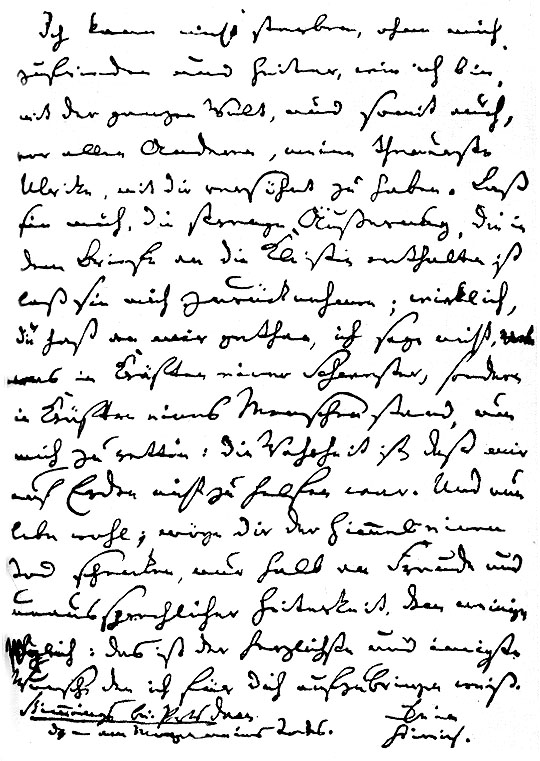 Ich kann nicht sterben, ohne mich,
zufrieden und heiter, wie ich bin,
mit der ganzen Welt, und somit auch,
vor allen Anderen, meine theuerste
Ulrike, mit dir versöhnt zu haben. Laß
sie mich, die strenge Äußerung, die in
dem Briefe an die Kleisten enthalten ist
laß sie mich zurücknehmen; wirklich,
du hast an mir gethan, ich sage nicht,
was in Kräften einer Schwester, sondern
in Kräften eines Menschen stand, um
mich zu retten: die Wahrheit ist, daß mir
auf Erden nicht zu helfen war. Und nun
lebe wohl; möge dir der Himmel einen
Tod schenken, nur halb an Freude und
unaussprechlicher Heiterkeit, dem meinigen
gleich: das ist der herzlichste und innigste
Wunsch, den ich für dich aufzubringen weiß.
Stimmings bei Potsdam
d — am Morgen meines Todes.
Dein
Heinrich.